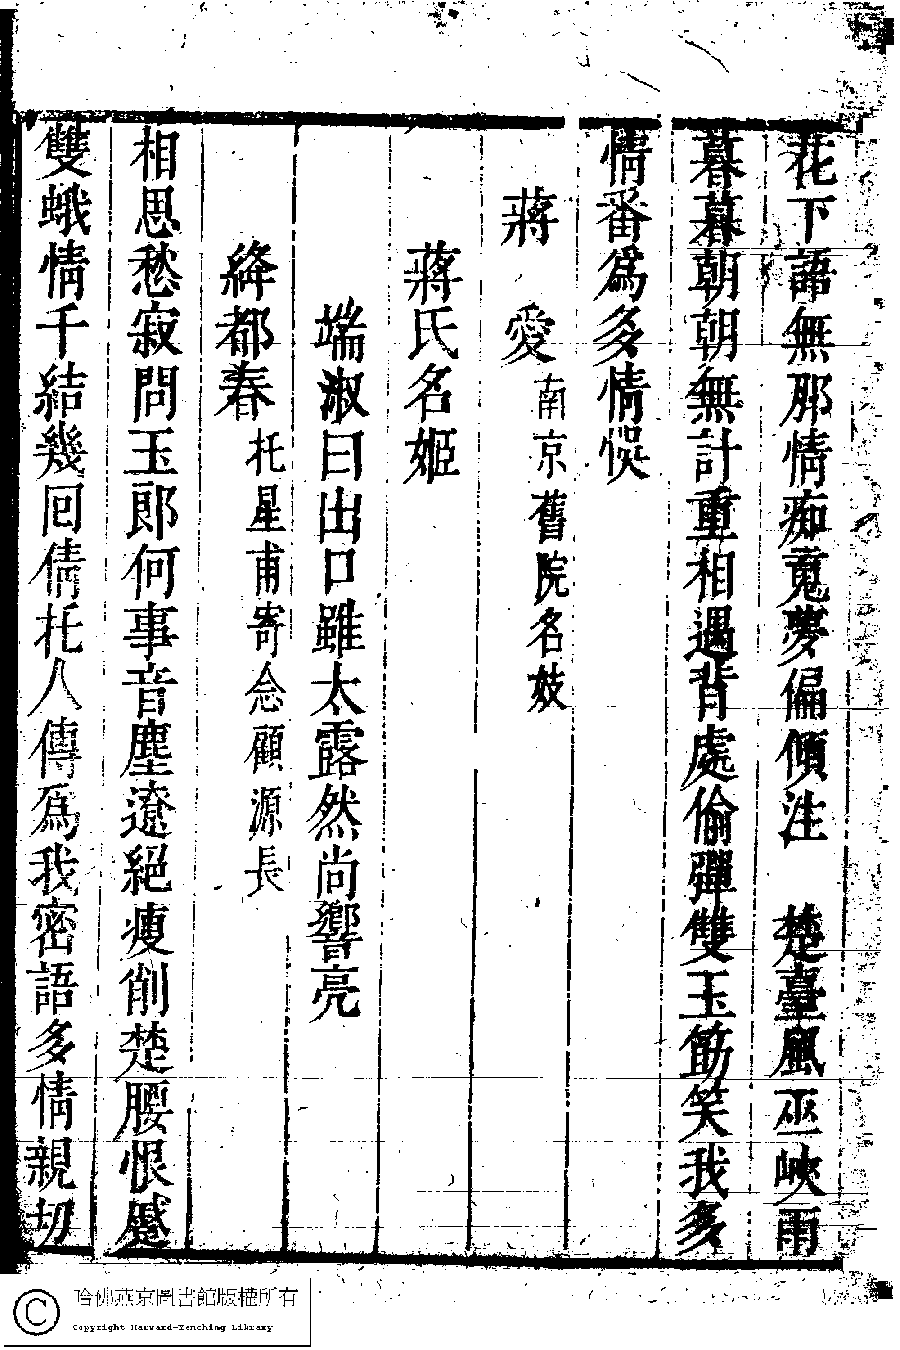 花下語無那情痴蒐夢偏傾注　楚臺風巫峽雨
暮暮朝朝無計重相遇背處偷彈雙玉筯笑我多
情番爲多情悞
蔣　愛南京舊院名妓
蔣氏名姬
端淑曰出口雖太露然尚響亮
絳都春托星甫寄念顧源長
相思愁寂問玉郎何事音塵遼絕瘦削楚腰恨蹙
雙蛾情千結幾回倩托人傳爲我密語多情親切
哈佛燕京圖書館版權所有
Copyright Harvard-Yenching Library